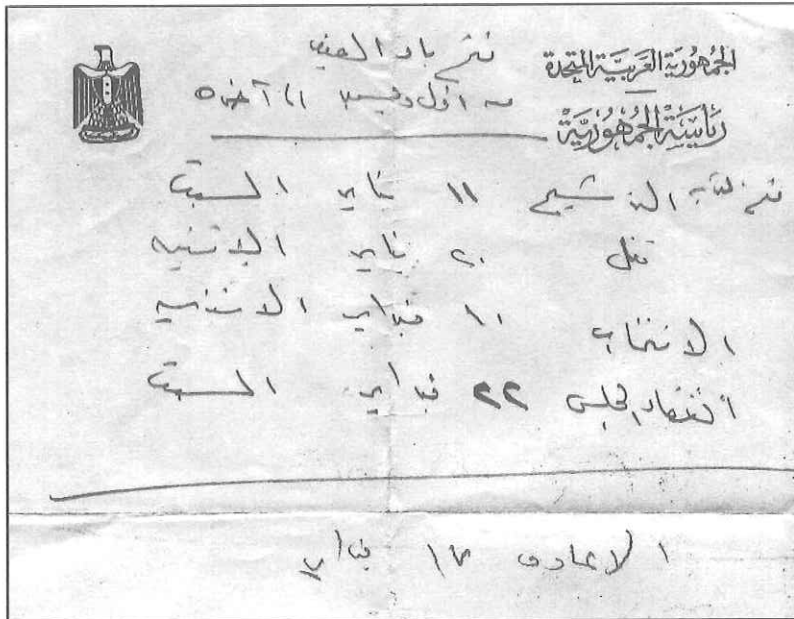 الجمهورية العربية المتحدة
رياسة الجمهورية
فتح باب
من أول ديسمبر الى آخره
فتح باب الترشيح ١١ يناير السبت
قفل ٢٠ يناير الاثنين
الانتخاب ١٠ فبراير الاثنين
انعقاد المجلس ٢٢ فبراير السبت
الاعادة فبراير